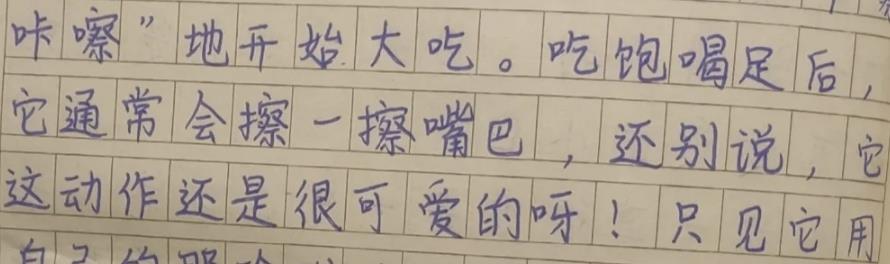 咔嚓”地开始大吃。吃饱喝足后，
它通常会擦一擦嘴巴，还别说，它
这动作还是很可爱的呀！只见它用